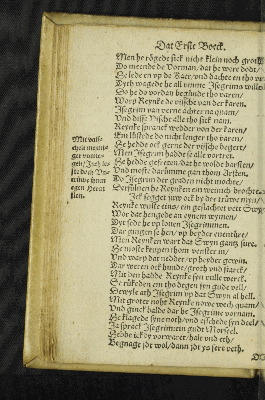 Dat Erste Boeck.
Men he rögede sick nicht klein noch grott
Do meende de Vorman, dat he were dodt/
He lede en vp de Kaer/ vnd dachte en tho
Dyt wagede he all vmme Isegrims wille
So he do vordan begunde tho varen/
Warp Reynke de vische van der karen.
Isegrim van verne achter na quam/
Vnd disse Vische alle tho sick nam.
Reynke spranck wedder von der karen/
Em lüstede do nicht lenger tho varen/
He hedde ock gerne der vische begert/
Men Isegrim hadde se alle vortert.
He hedde gegeten/ dat he wolde barsten/
Vnd moste darümme gan thom Arsten.
Do Isegrim der graden nicht mochte/
Der sülven he Reynken ein wenich brochte
Ick segget juw ock by der trüwe myn/
Reynke wuste eins/ ein geslachtet vett Swyn
Wor dat hengede an eynem wymen/
Dyt sede he vp louen Isegrimmen.
Dar gingen se hen/ vp beyder euentüre/
Men Reynken wart dat Swyn gantz sure.
He moste krepen thom venster in/
Vnd warp dat nedder/ vp beyder gewin.
Dar weren ock hunde/ groth vnd starck/
Mit den hadde Reynke syn vulle werck.
Se rückeden em tho degen syn gude vell/
Dewyle ath Isegrim vp dat Swyn al hell.
Mit groter noht Reynke nowe wech quam/
Vnd ginck balde dar he Isegrime vornam.
He klagede syne noth/ vnd eschede syn deel/
Ja sprack Isegrim/ ein gudt Morseel
Hebbe ick dy vorwaret/ hale vnd eth/
Begnage jdt wol/ dann jdt ys sere veth.
Mit valschen
gen Heren